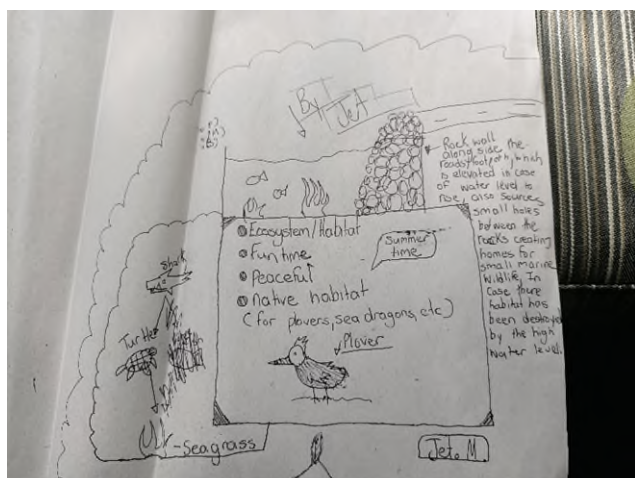 By
Jet
Rock wall
along side the
roads/footpath, which
is elevated in case
of water level to
rise, also sources
small holes
between the
rocks creating
homes for
small marine
wildlife. In
case there
habitat has
been destroyed
by the high
water level.
Ecosystem/Habitat
Fun time
Peaceful
Native habitat
(for plovers, sea dragons, etc)
Summer
time
Plover
Shark
Turtle
-Seagrass
Jet. M.